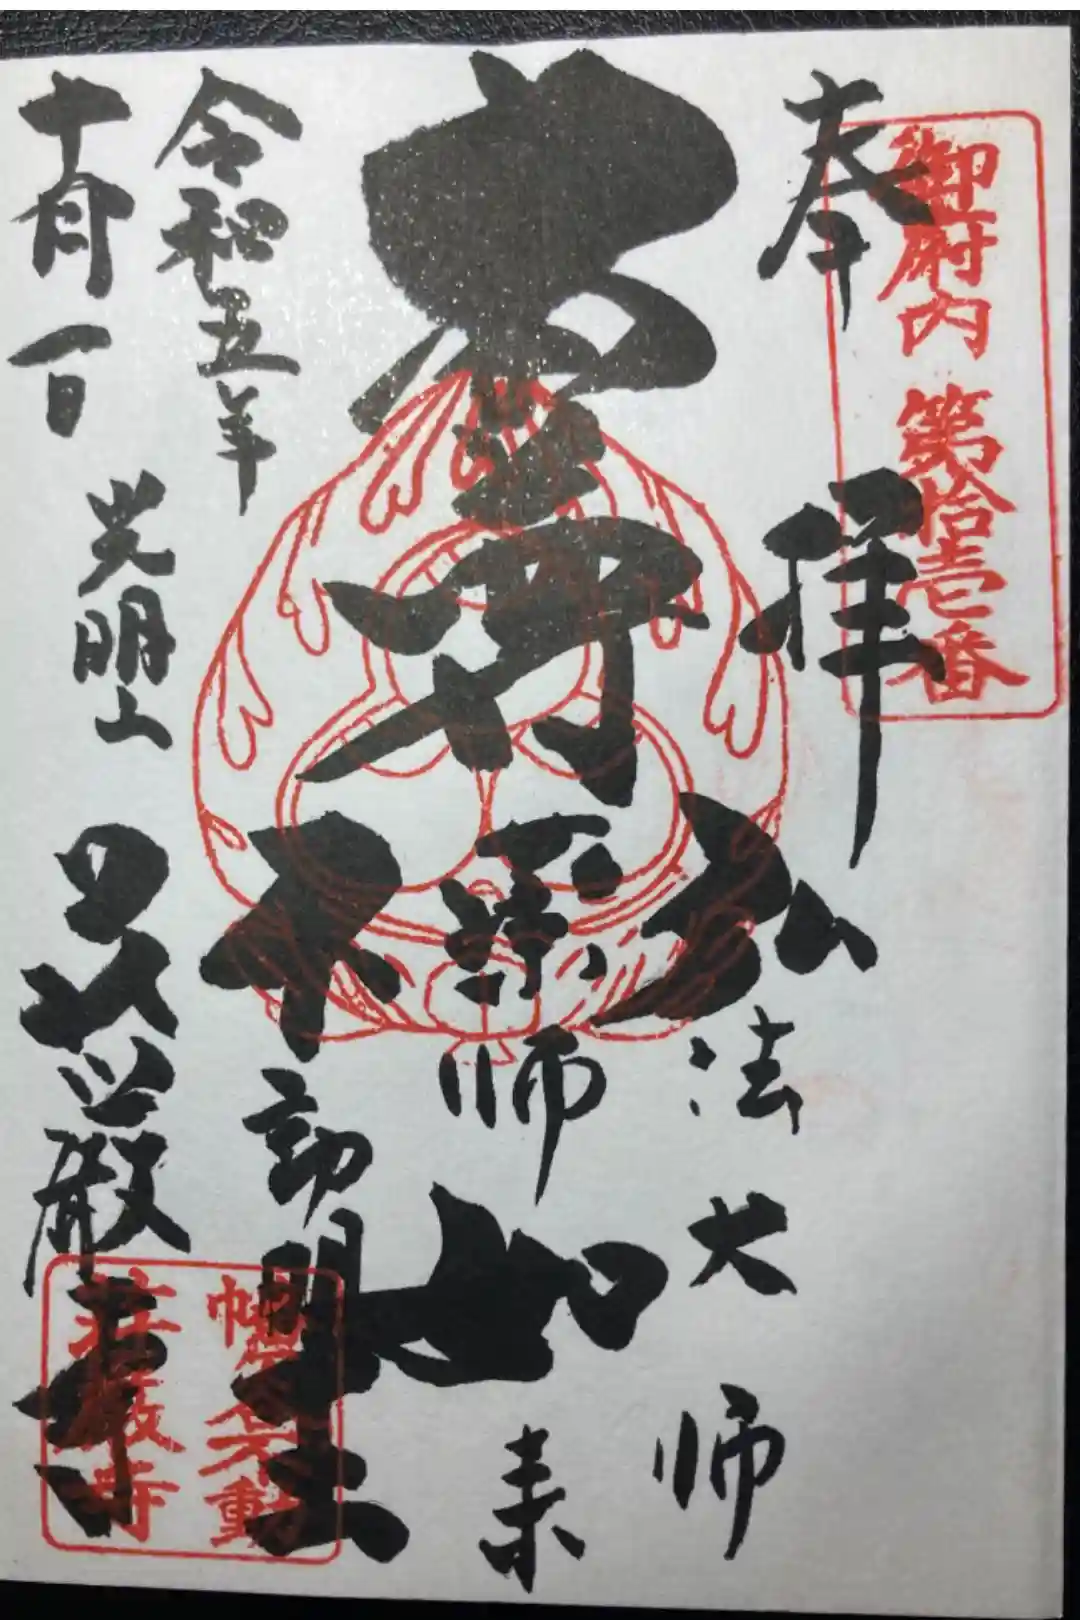 御府内第拾壱番
奉拝
弘法大師
薬師如来
不動明王
令和五年
十一月一日
光明山
荘厳寺
幡谷不動
荘厳寺